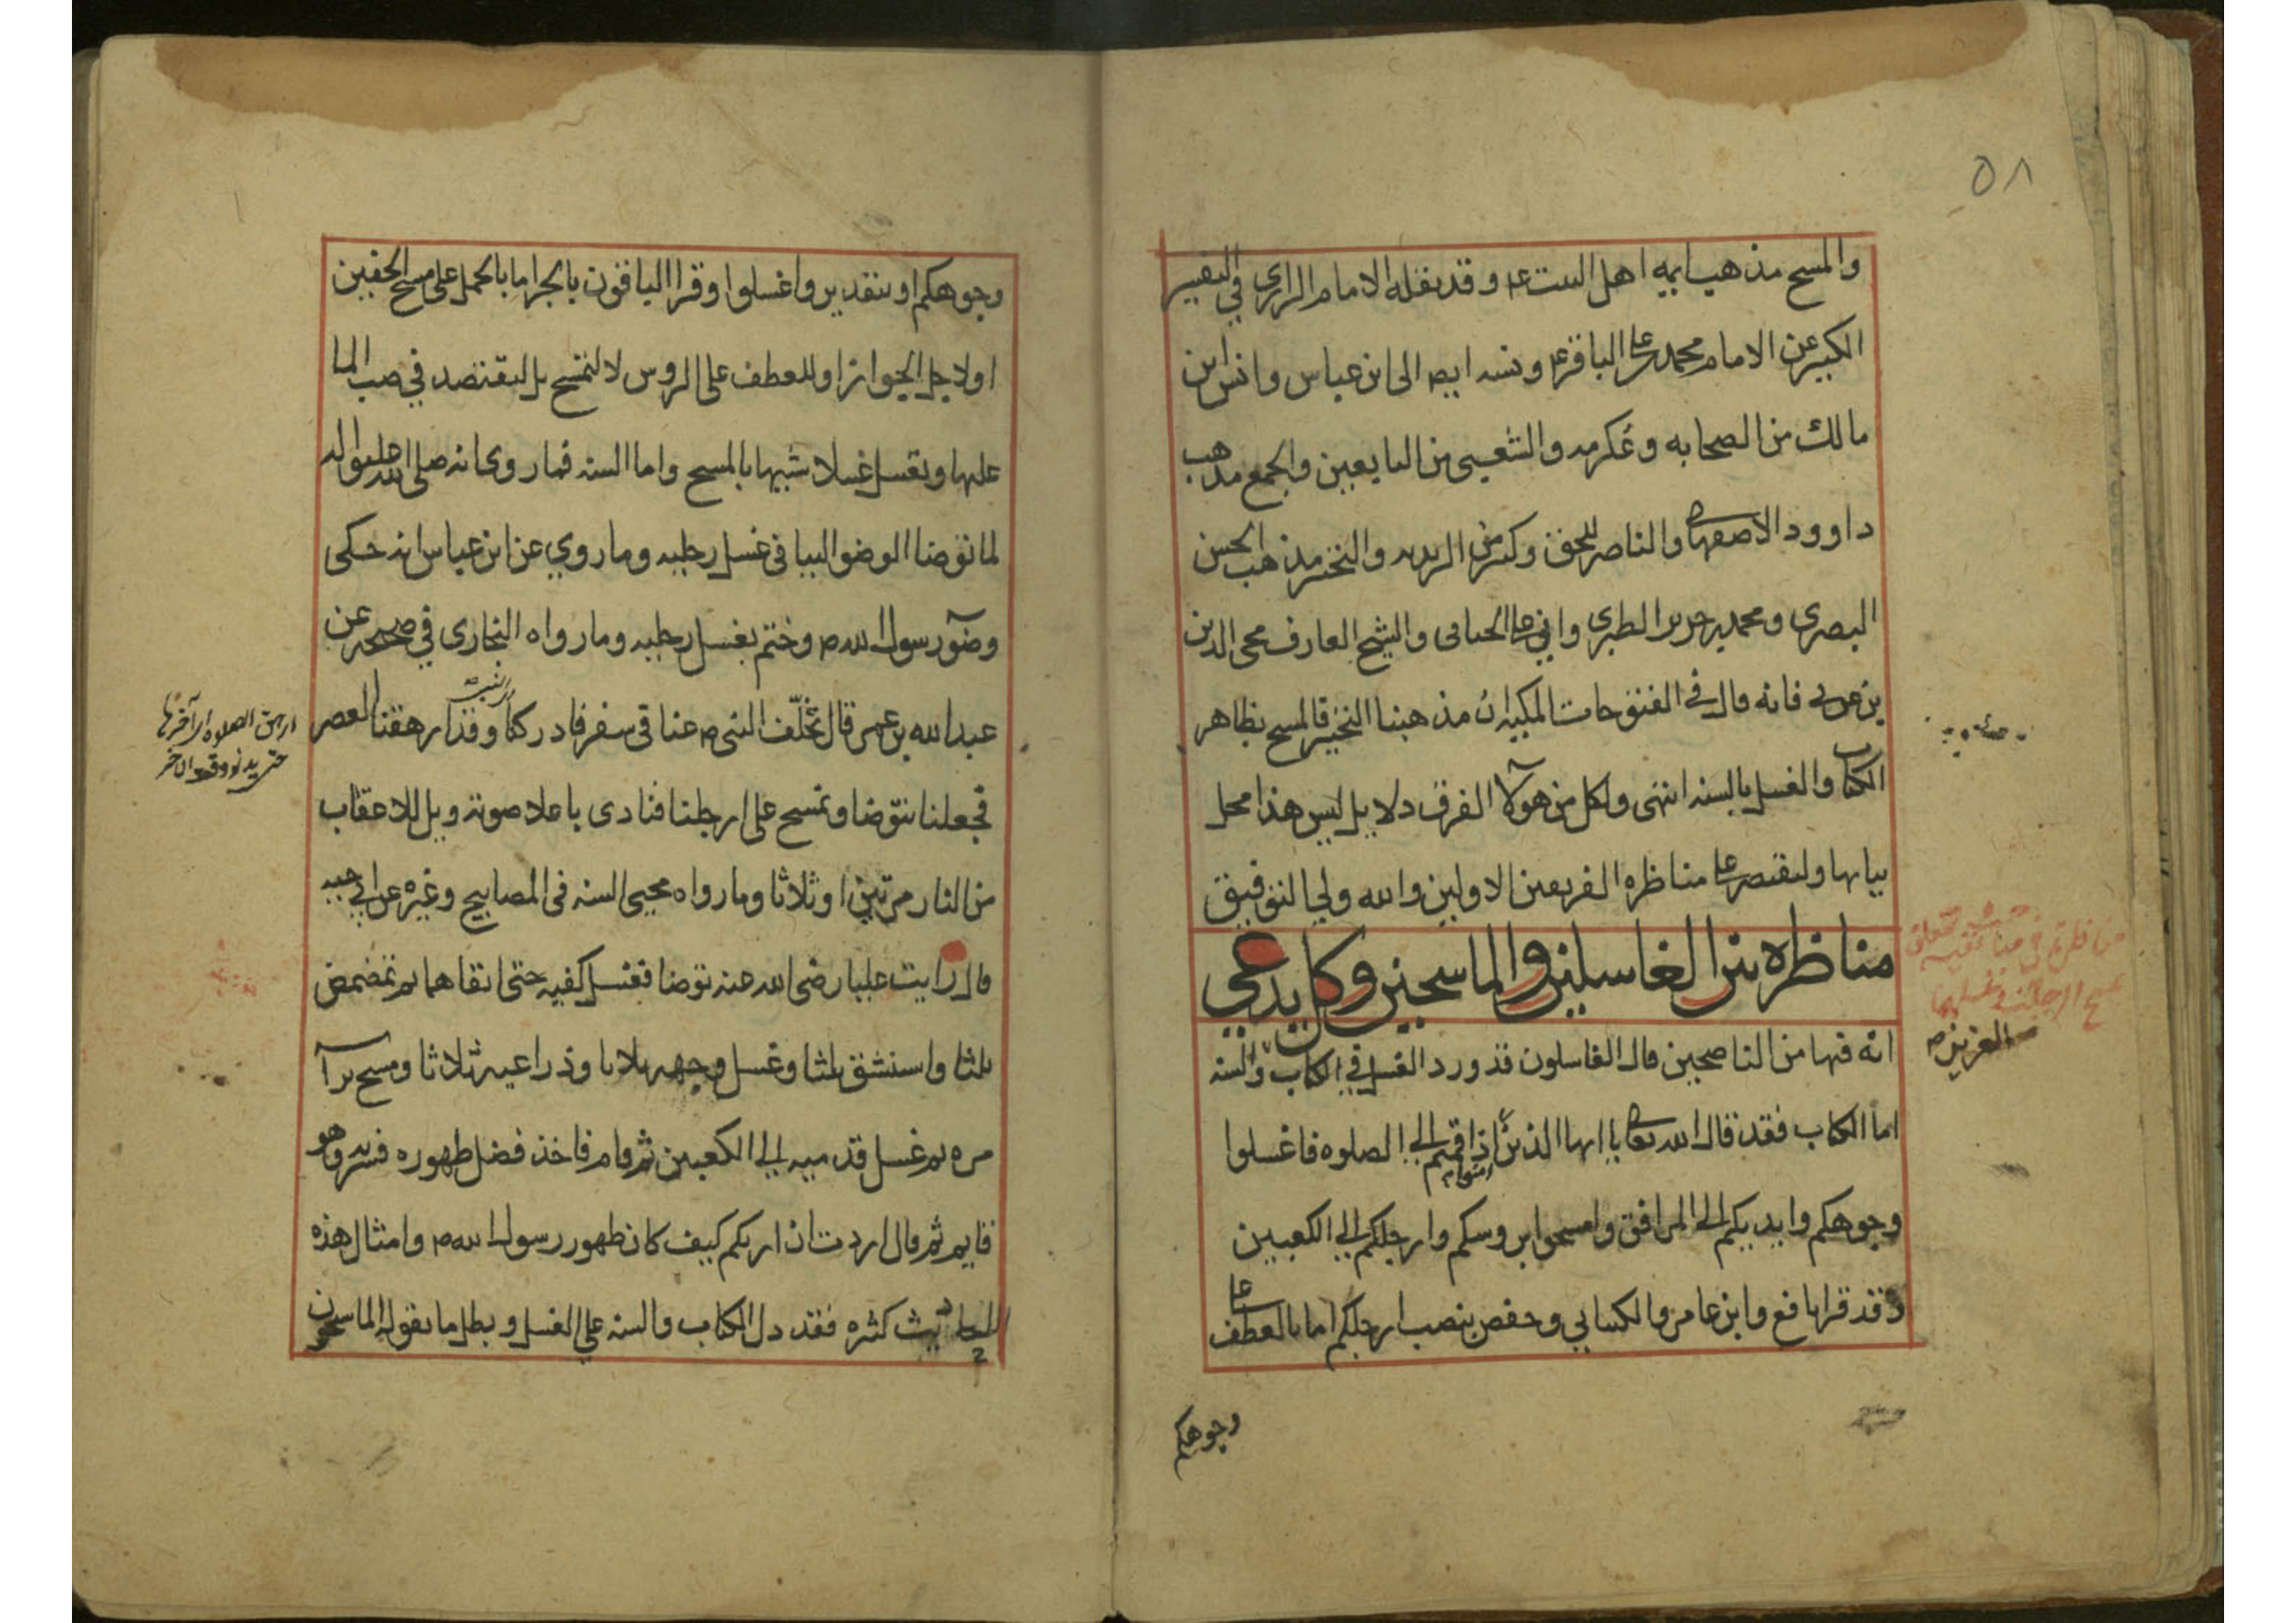 ٥٨
والمسح مذهب ايمه اهل البيت ع۴ وقد نقله الامام الرازي في التفسير
الكبير عن الامام محمد بن علي الباقر ع۴ ونسبه ايضا الى ابن عباس وانس ابن
مالك من الصحابه وعكرمه والشعبي من التابعين والجمع مذهب
داوود الاصفهاني والناصر للحق وكثير من الزيديه والتخيير مذهب الحسن
البصري ومحمد بن جرير الطبري وابي علي الجبائي والشيخ العارف محي الدين
بن عربي فانه قال في الفتوحات المكيه ان مذهبنا التخيير فالمسح بظاهر
الكتاب والغسل بالسنه انتهى ولكل من هولآ الفرق دلايل ليس هذا محل
بيانها ولنقتصر على مناظره الفريقين الاولين والله ولي التوفيق
مناظره بين الغاسلين والماسحين وكل يدعي
انه فيها من الناصحين قال الغاسلون قد ورد الغسل في الكتاب والسنه
العزيز
اما الكتاب فقد قال الله تعالى يا ايها الذين امنوا اذا قمتم الى الصلوه فاغسلوا
وجوهكم وايديكم الى المرافق وامسحوا بروسكم وارجلكم الى الكعبين
وقد قرا نافع وابن عامر والكسايي وحفص بنصب ارجلكم اما بالعطف على
وجوهكم
وجوهكم او بتقدير واغسلوا وقرا الباقون بالجر اما بالحمل على مسح الخفين
او لاجل الجوار او للعطف على الروس لا لتمسح بل ليقتصد في صب الما
عليها وتغسل غسلا شبيها بالمسح واما السنه فما روي انه صلى الله عليه واله
لما توضا الوضو البياني غسل رجليه وما روي عن ابن عباس انه حكى
وضوٓ رسول الله ص وختم بغسل رجليه وما رواه البخاري في صحيحه عن
عبد الله بن عمر قال تخلّف النبي ص عنا في سفر فادركنا وقد ارهقنا العصر
ارهق الصلوه اي اخرها
حتى يدنو وقت الاخر
فجعلنا نتوّضا ونمسح على ارجلنا فنادى باعلا صوته ويل للاعقاب
من النار مرتين او ثلاثا وما رواه محيي السنه في المصابيح وغيره عن ابي حيه
قال رايت عليا رضى الله عنه توضا فغسل كفيه حتى انقاهما ثم تمضمض
ثلثا واستنشق ثلثا وغسل وجهه ثلاثا وذراعيه ثلاثا ومسح برآ
مره ثم غسل قدميه الى الكعبين ثم قام فاخذ فضل طهوره فشربه وهو
قايم ثم قال اردت ان اريكم كيف كان طهور رسول الله ص وامثال هذه
الاحاديث كثره فقد دل الكتاب والسنه على الغسل وبطل ما يقوله الماسحون